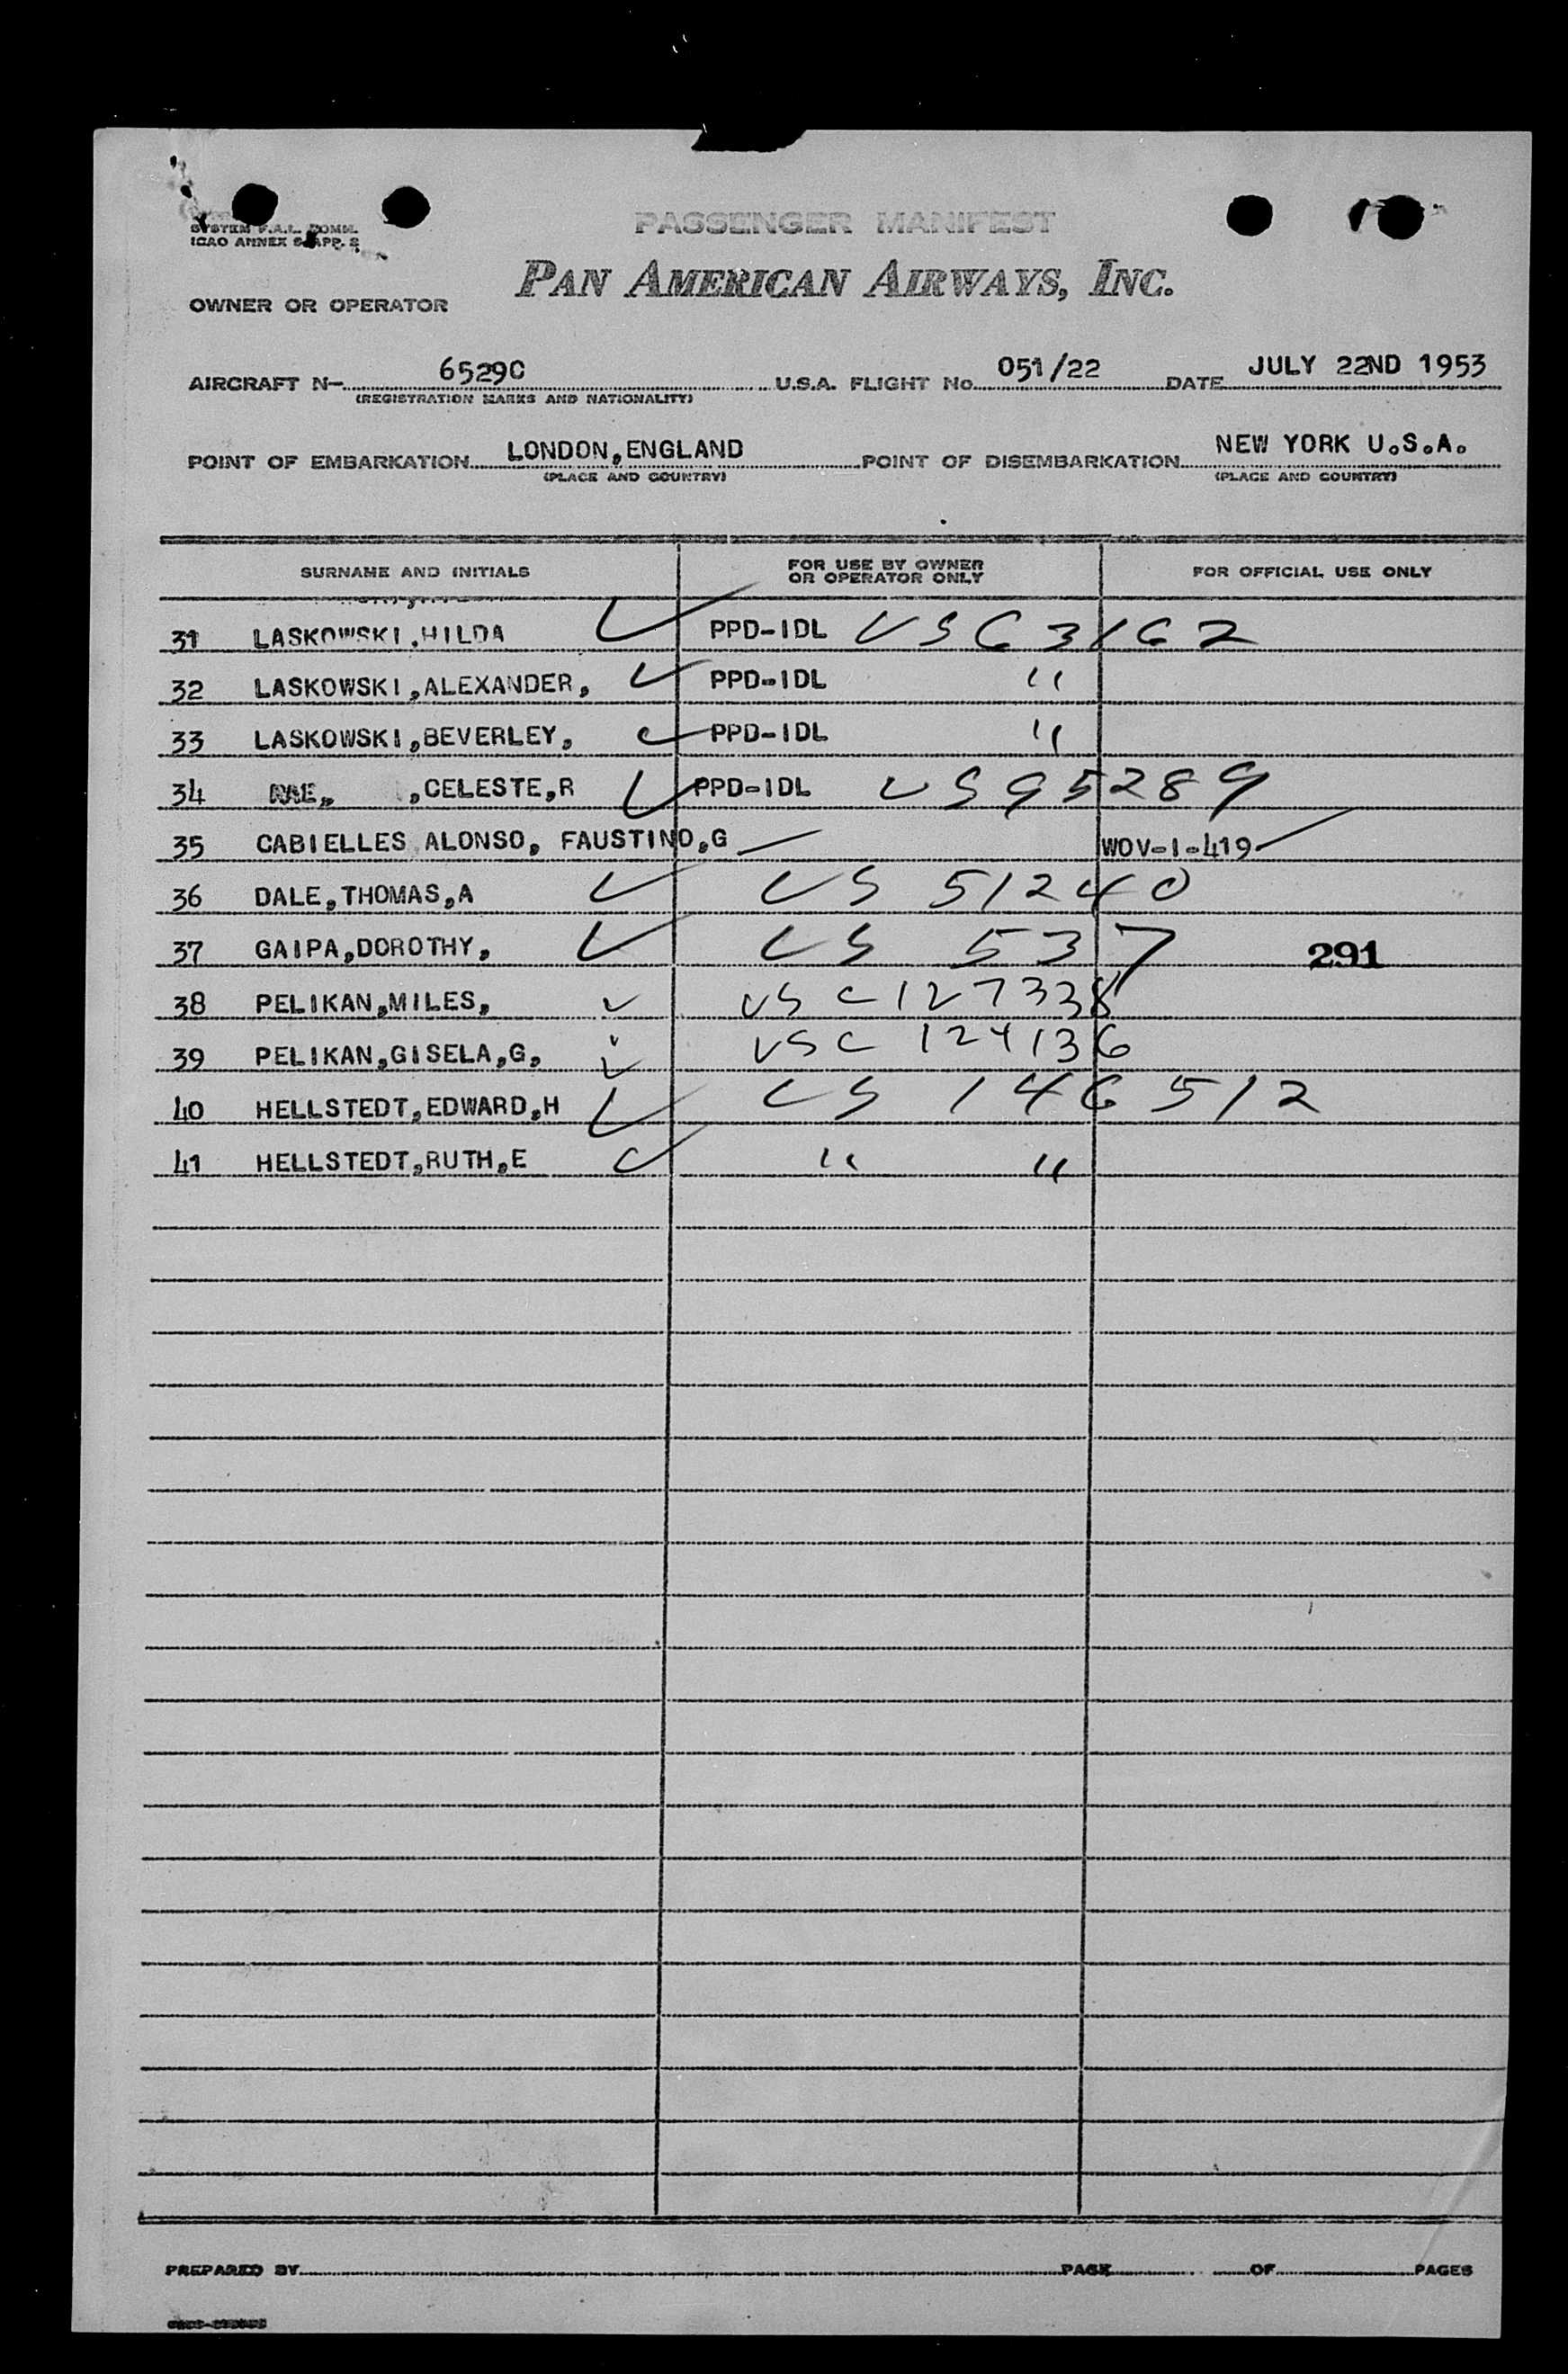 PASSENGER MANIFEST
SYSTEM F.A.L. COMM.
ICAO ANNEX 9 APP. 2
PAN AMERICAN AIRWAYS, INC.
OWNER OR OPERATOR
AIRCRAFT N- 6529C U.S.A. FLIGHT No 051/22 DATE JULY 22ND 1953
(REGISTRATION MARKS AND NATIONALITY)
POINT OF EMBARKATION LONDON,ENGLAND POINT OF DISEMBARKATION NEW YORK U.S.A.
(PLACE AND COUNTRY) (PLACE AND COUNTRY)
SURNAME AND INITIALS FOR USE BY OWNER OR OPERATOR ONLY FOR OFFICIAL USE ONLY
31 LASKOWSKI,HILDA PPD-IDL US63162
32 LASKOWSKI,ALEXANDER, PPD-IDL "
33 LASKOWSKI,BEVERLEY, PPD-IDL "
34 RAE, ,CELESTE,R PPD-IDL US95289
35 CABIELLES ALONSO, FAUSTINO,G WOV-I-419
36 DALE,THOMAS,A US 51240
37 GAIPA,DOROTHY, US 537 291
38 PELIKAN,MILES, USC 127338
39 PELIKAN,GISELA,G, USC 124136
40 HELLSTEDT,EDWARD,H US 146512
41 HELLSTEDT,RUTH,E " "
PREPARED BY PAGE OF PAGES